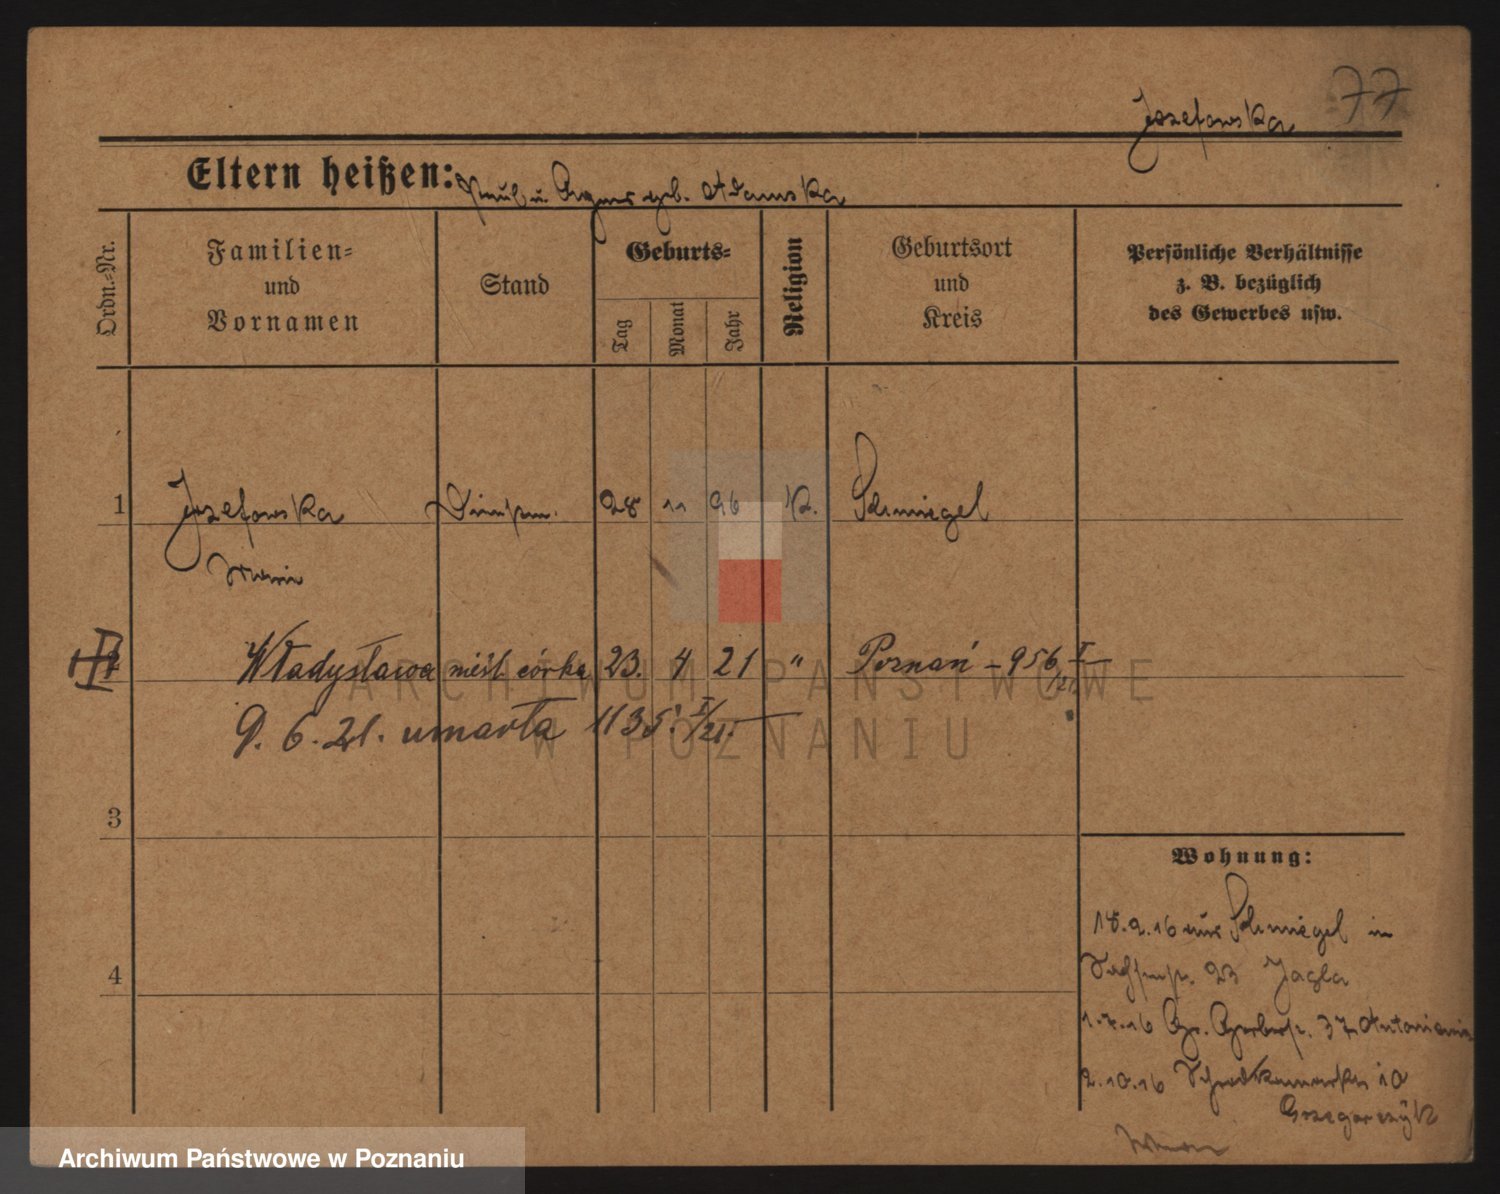 77
Jozefowska
Eltern heißen: Paul u. Agnes geb. Adamska
Ordn.-Nr.
Familien-
und
Vornamen
Stand
Geburts-
Tag
Monat
Jahr
Religion
Geburtsort
und
Kreis
Persönliche Verhältnisse
z. B. bezüglich
des Gewerbes usw.
1 Jozefowska 28 11 96 K. Schmiegel
2 Władysława nieśl. córka 23. 4 21 " Poznań - 956 I/21
9. 6. 21. umarła 1135. I/21.
3
4
Wohnung:
18.2.16 aus Schmiegel in
23 Jagla
1.7.16 Gr. Gerberstr. 37
2.10.16 10
Grzegorczyk
ARCHIWUM PAŃSTWOWE
W POZNANIU
Archiwum Państwowe w Poznaniu